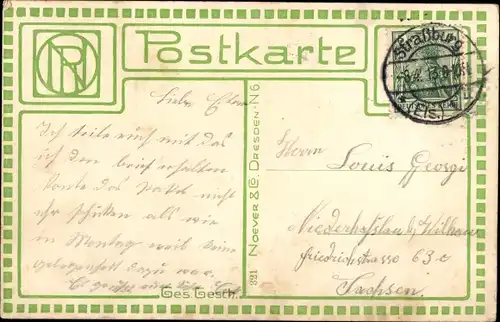 Postkarte
Straßburg
(Els.)
Liebe Eltern
Ich teile euch mit das
ich den brief erhalten
das Paket nicht
ehr schicken als wie
in Montag weil keine
gelegenheit dazu war.
Es
Ges. Gesch.
891 Noever & Co. Dresden-N 6.
Herrn
Louis Georgi
Niederhaßlau b/ Wilkau
friedrichstrasse 63 c
Sachsen.